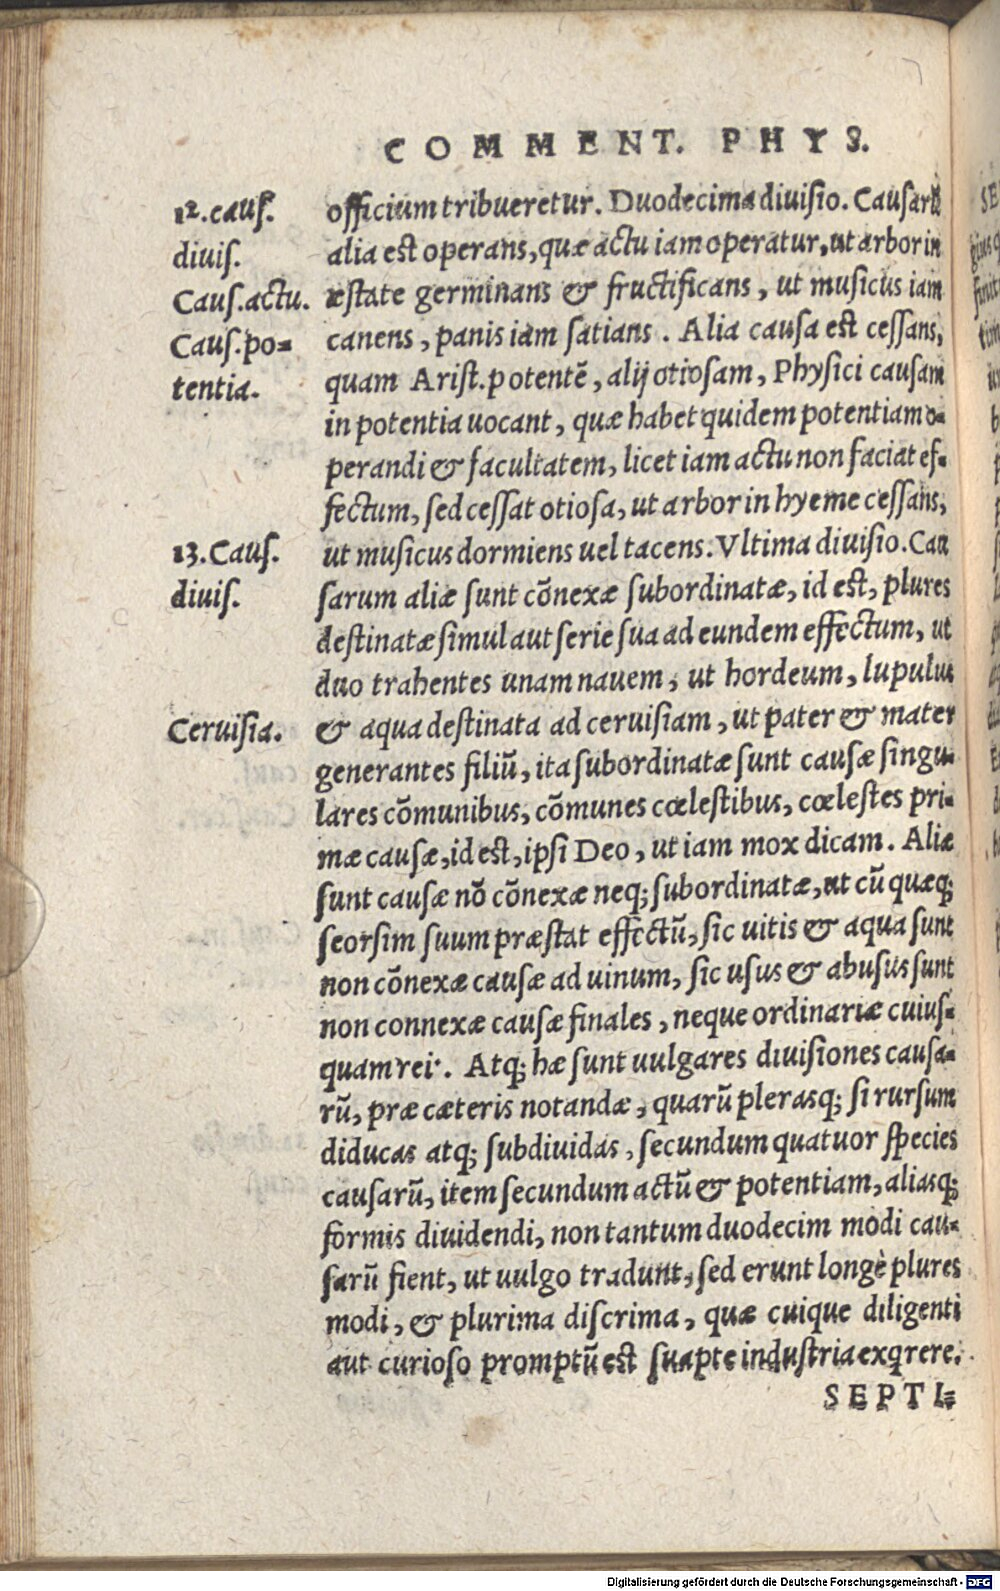 COMMENT. PHYS.
12. caus.
diuis.
Caus. actu.
Caus. po=
tentia.
13. Caus.
diuis.
Ceruisia.
officium tribueretur. Duodecima diuisio. Causarū
alia est operans, quæ actu iam operatur, ut arbor in
æstate germinans & fructificans, ut musicus iam
canens, panis iam satians. Alia causa est cessans,
quam Arist. potentē, alij otiosam, Physici causam
in potentia uocant, quæ habet quidem potentiam o=
perandi & facultatem, licet iam actu non faciat ef=
fectum, sed cessat otiosa, ut arbor in hyeme cessans,
ut musicus dormiens uel tacens. Vltima diuisio. Cau
sarum aliæ sunt cōnexæ subordinatæ, id est, plures
destinatæ simul aut serie sua ad eundem effectum, ut
duo trahentes unam nauem, ut hordeum, lupulus
& aqua destinata ad ceruisiam, ut pater & mater
generantes filiū, ita subordinatæ sunt causæ singu=
lares cōmunibus, cōmunes cœlestibus, cœlestes pri=
mæ causæ, id est, ipsi Deo, ut iam mox dicam. Aliæ
sunt causæ nō cōnexæ neq; subordinatæ, ut cū quæq;
seorsim suum præstat effectū, sic uitis & aqua sunt
non cōnexæ causæ ad uinum, sic usus & abusus sunt
non connexæ causæ finales, neque ordinariæ cuius=
quam rei. Atq; hæ sunt uulgares diuisiones causa=
rū, præ cæteris notandæ, quarū plerasq; si rursum
diducas atq; subdiuidas, secundum quatuor species
causarū, item secundum actū & potentiam, aliasq;
formis diuidendi, non tantum duodecim modi cau=
sarū fient, ut uulgo tradunt, sed erunt longè plures
modi, & plurima discrima, quæ cuique diligenti
aut curioso promptū est suapte industria exqrere.
SEPTI=
Digitalisierung gefördert durch die Deutsche Forschungsgemeinschaft - DFG